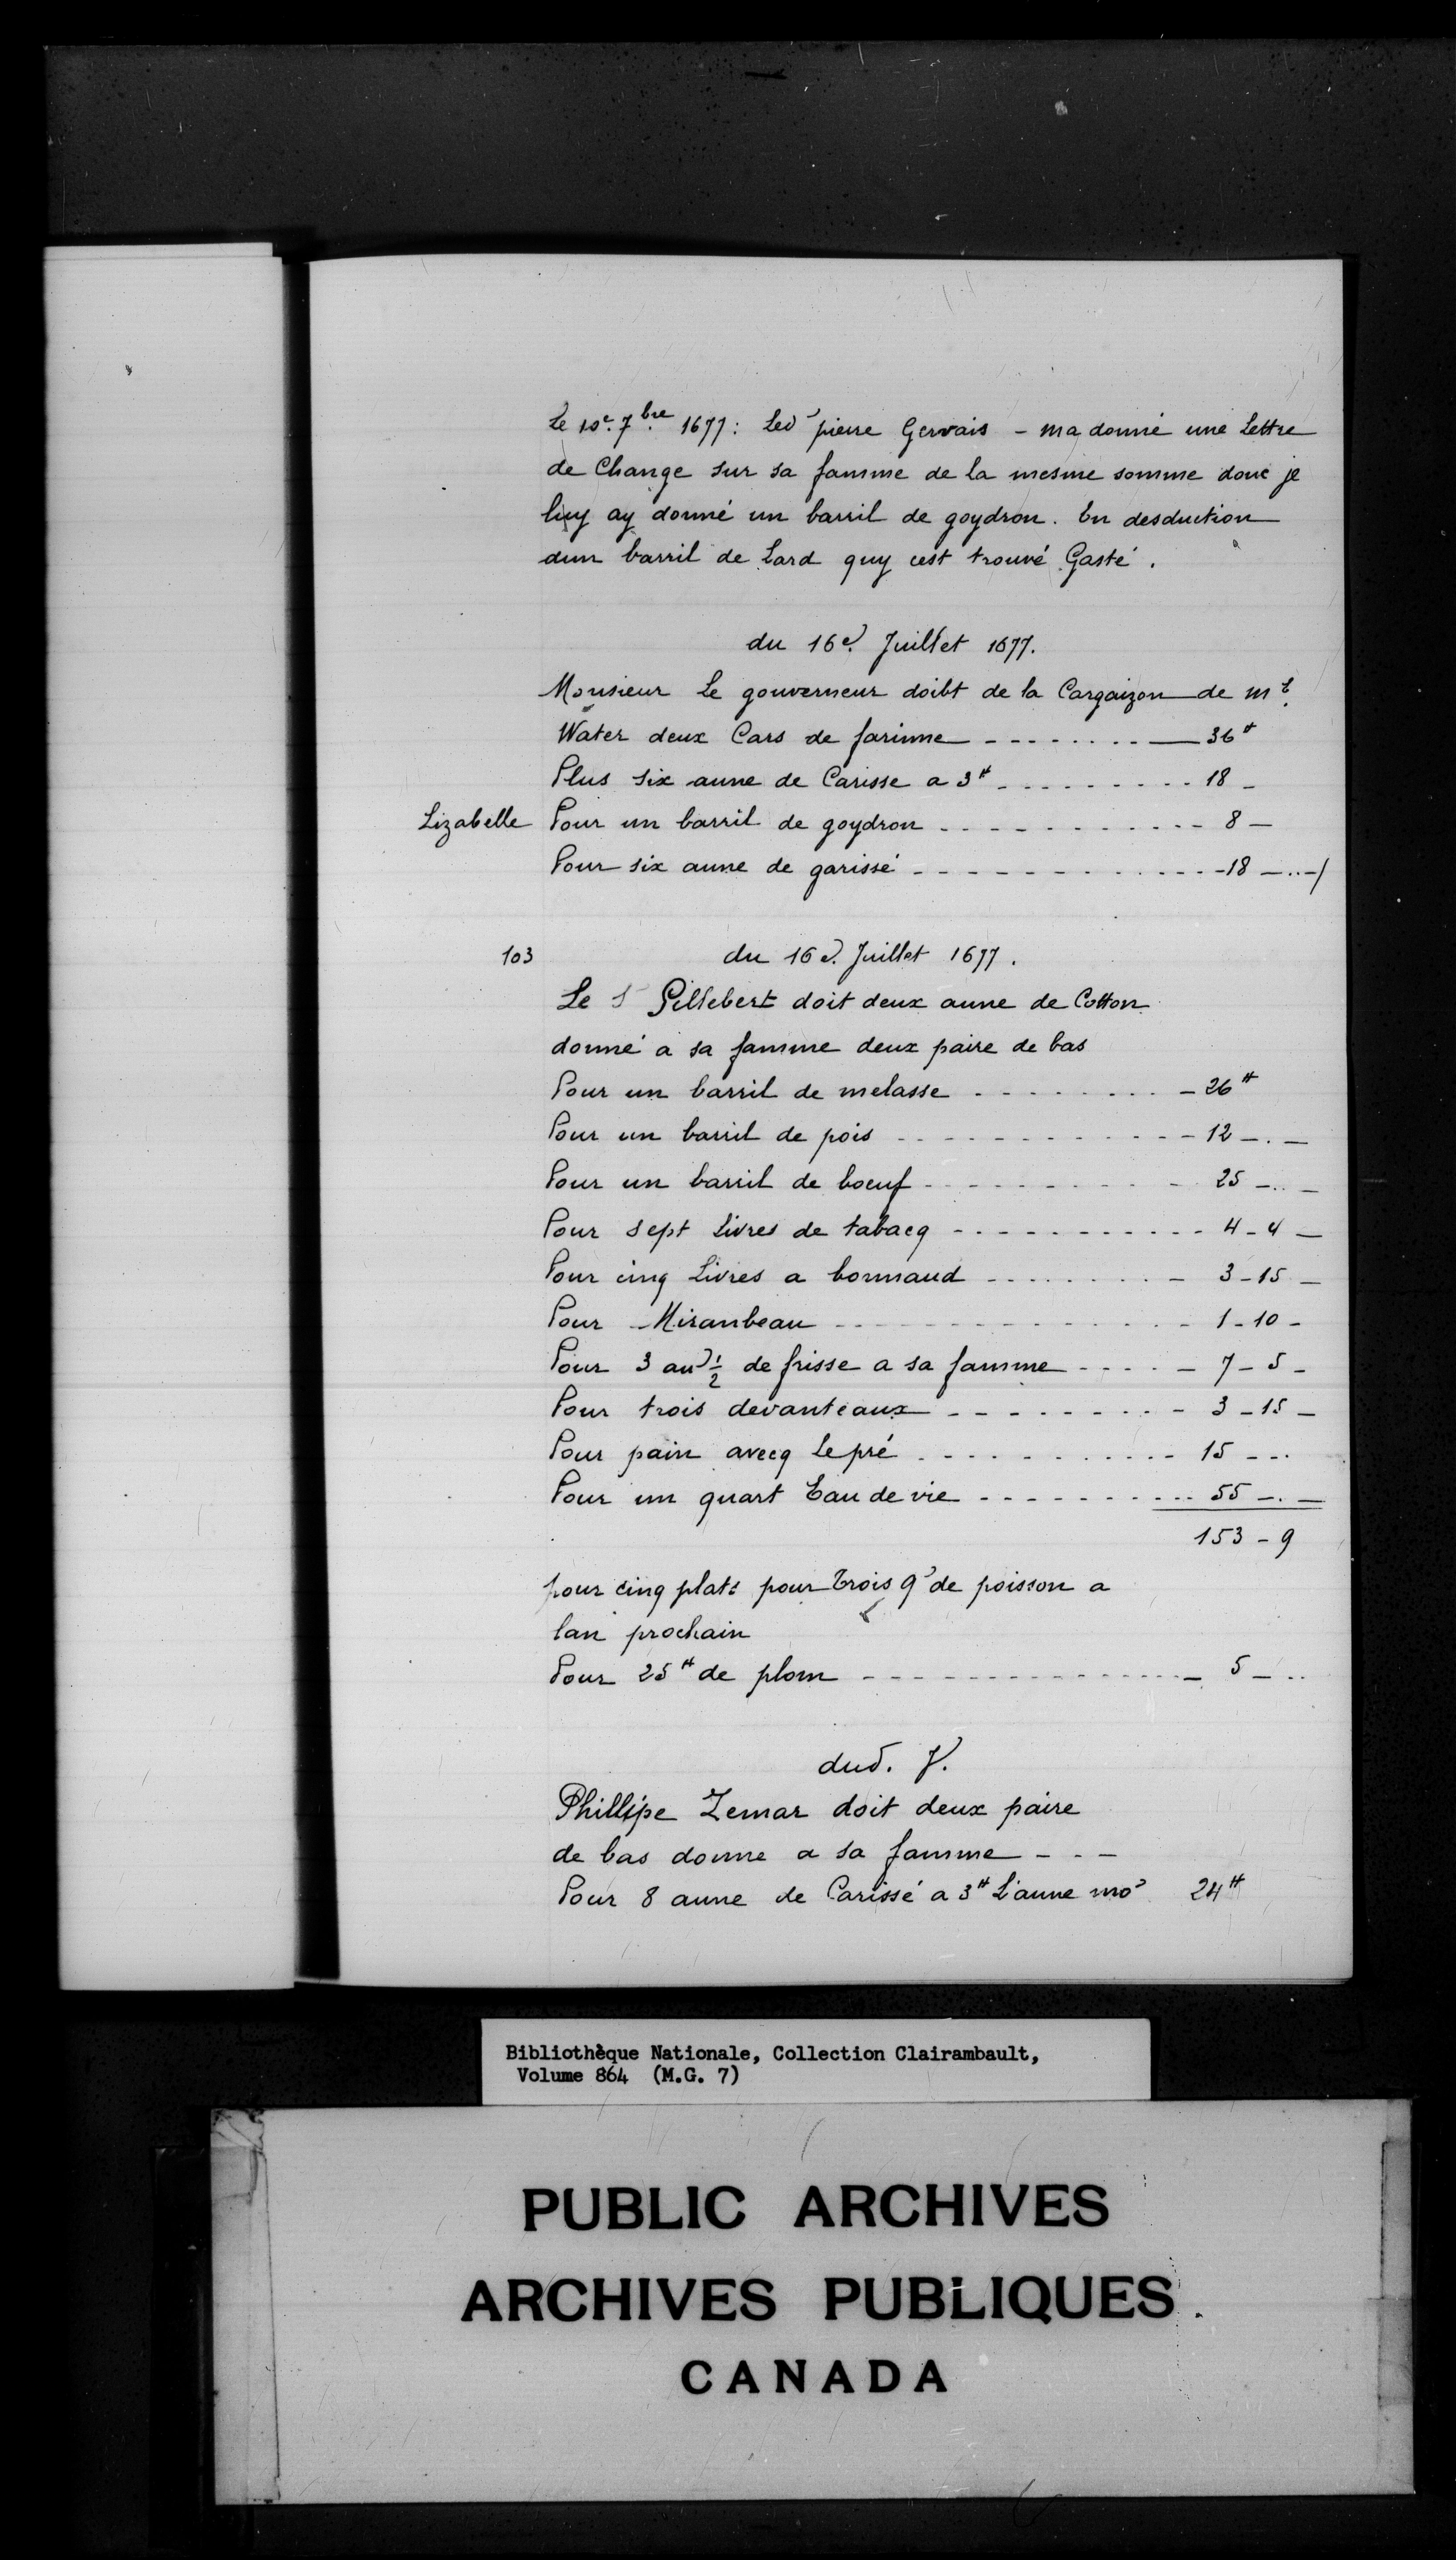 Le 10e. 7bre. 1677: Led pierre Gervais - ma donné une Lettre
de Change sur sa famme de la mesme somme donc je
luy ay donné un barril de goydron. En desduction
dun barril de Lard quy cest trouvé Gasté.
du 16e. Juillet 1677.
Monsieur Le gouverneur doibt de la Cargaizon de mr.
Water deux Cars de farinne - - - - - - - - 36#
Plus six aune de Carisse a 3# - - - - - - - - - 18 -
Lizabelle Pour un barril de goydron - - - - - - - - - - - - 8 -
Pour six aune de garissé - - - - - - - - - - - - - -18 -..-/
103 du 16e. Juillet 1677.
Le S Gillebert doit deux aune de Cotton
donné a sa famme deux paire de bas
Pour un barril de melasse - - - - - - - - - 26#
Pour un barril de pois - - - - - - - - - - - - 12 -.-
Pour un barril de boeuf - - - - - - - - - - - 25 -..-
Pour sept Livres de tabacq - - - - - - - - - - - - 4-4 -
Pour cinq Livres a bonnaud - - - - - - - - - 3-15 -
Pour Miranbeau - - - - - - - - - - - - - - - 1-10 -
Pour 3 au 1/2 de frisse a sa famme - - - - - 7-5 -
Pour trois devanteaux - - - - - - - - - - - 3-15 -
Pour pain avecq Lepré - - - - - - - - - - - - 15 - - -
Pour un quart Eau de vie - - - - - - - - - - - 55 -.-
153 - 9
pour cinq plats pour trois q de poisson a
lan prochain
Pour 25# de plom - - - - - - - - - - - - - - - - 5 - ..
dud. J.
Phillipe Zemar doit deux paire
de bas donne a sa famme - - -
Pour 8 aune de Carissé a 3# L'aune mo 24#
Bibliothèque Nationale, Collection Clairambault,
Volume 864 (M.G. 7)
PUBLIC ARCHIVES
ARCHIVES PUBLIQUES
CANADA